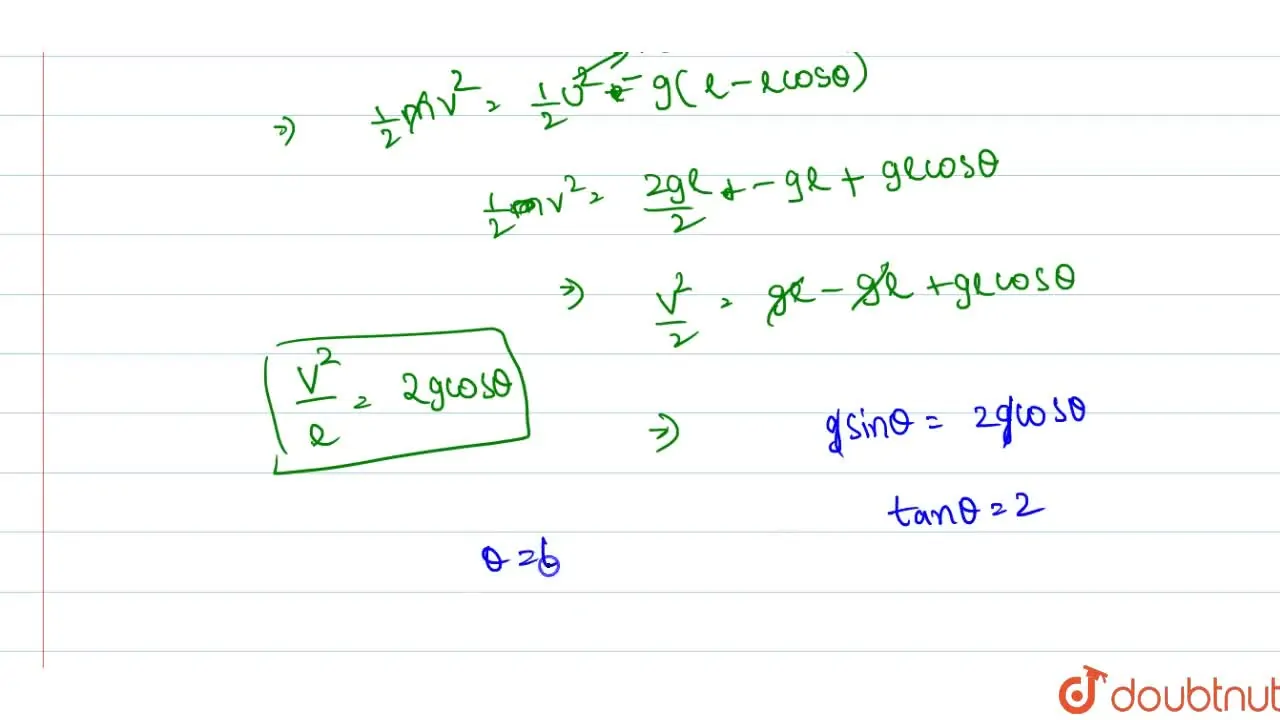 ⇒ 1/2 mv² = 1/2 u² - g(l - lcosθ)
1/2 mv² = 2gl/2 - gl + glcosθ
⇒ v²/2 = gl - gl + glcosθ
v²/l = 2gcosθ
⇒ gsinθ = 2gcosθ
tanθ = 2
θ = t
doubtnut